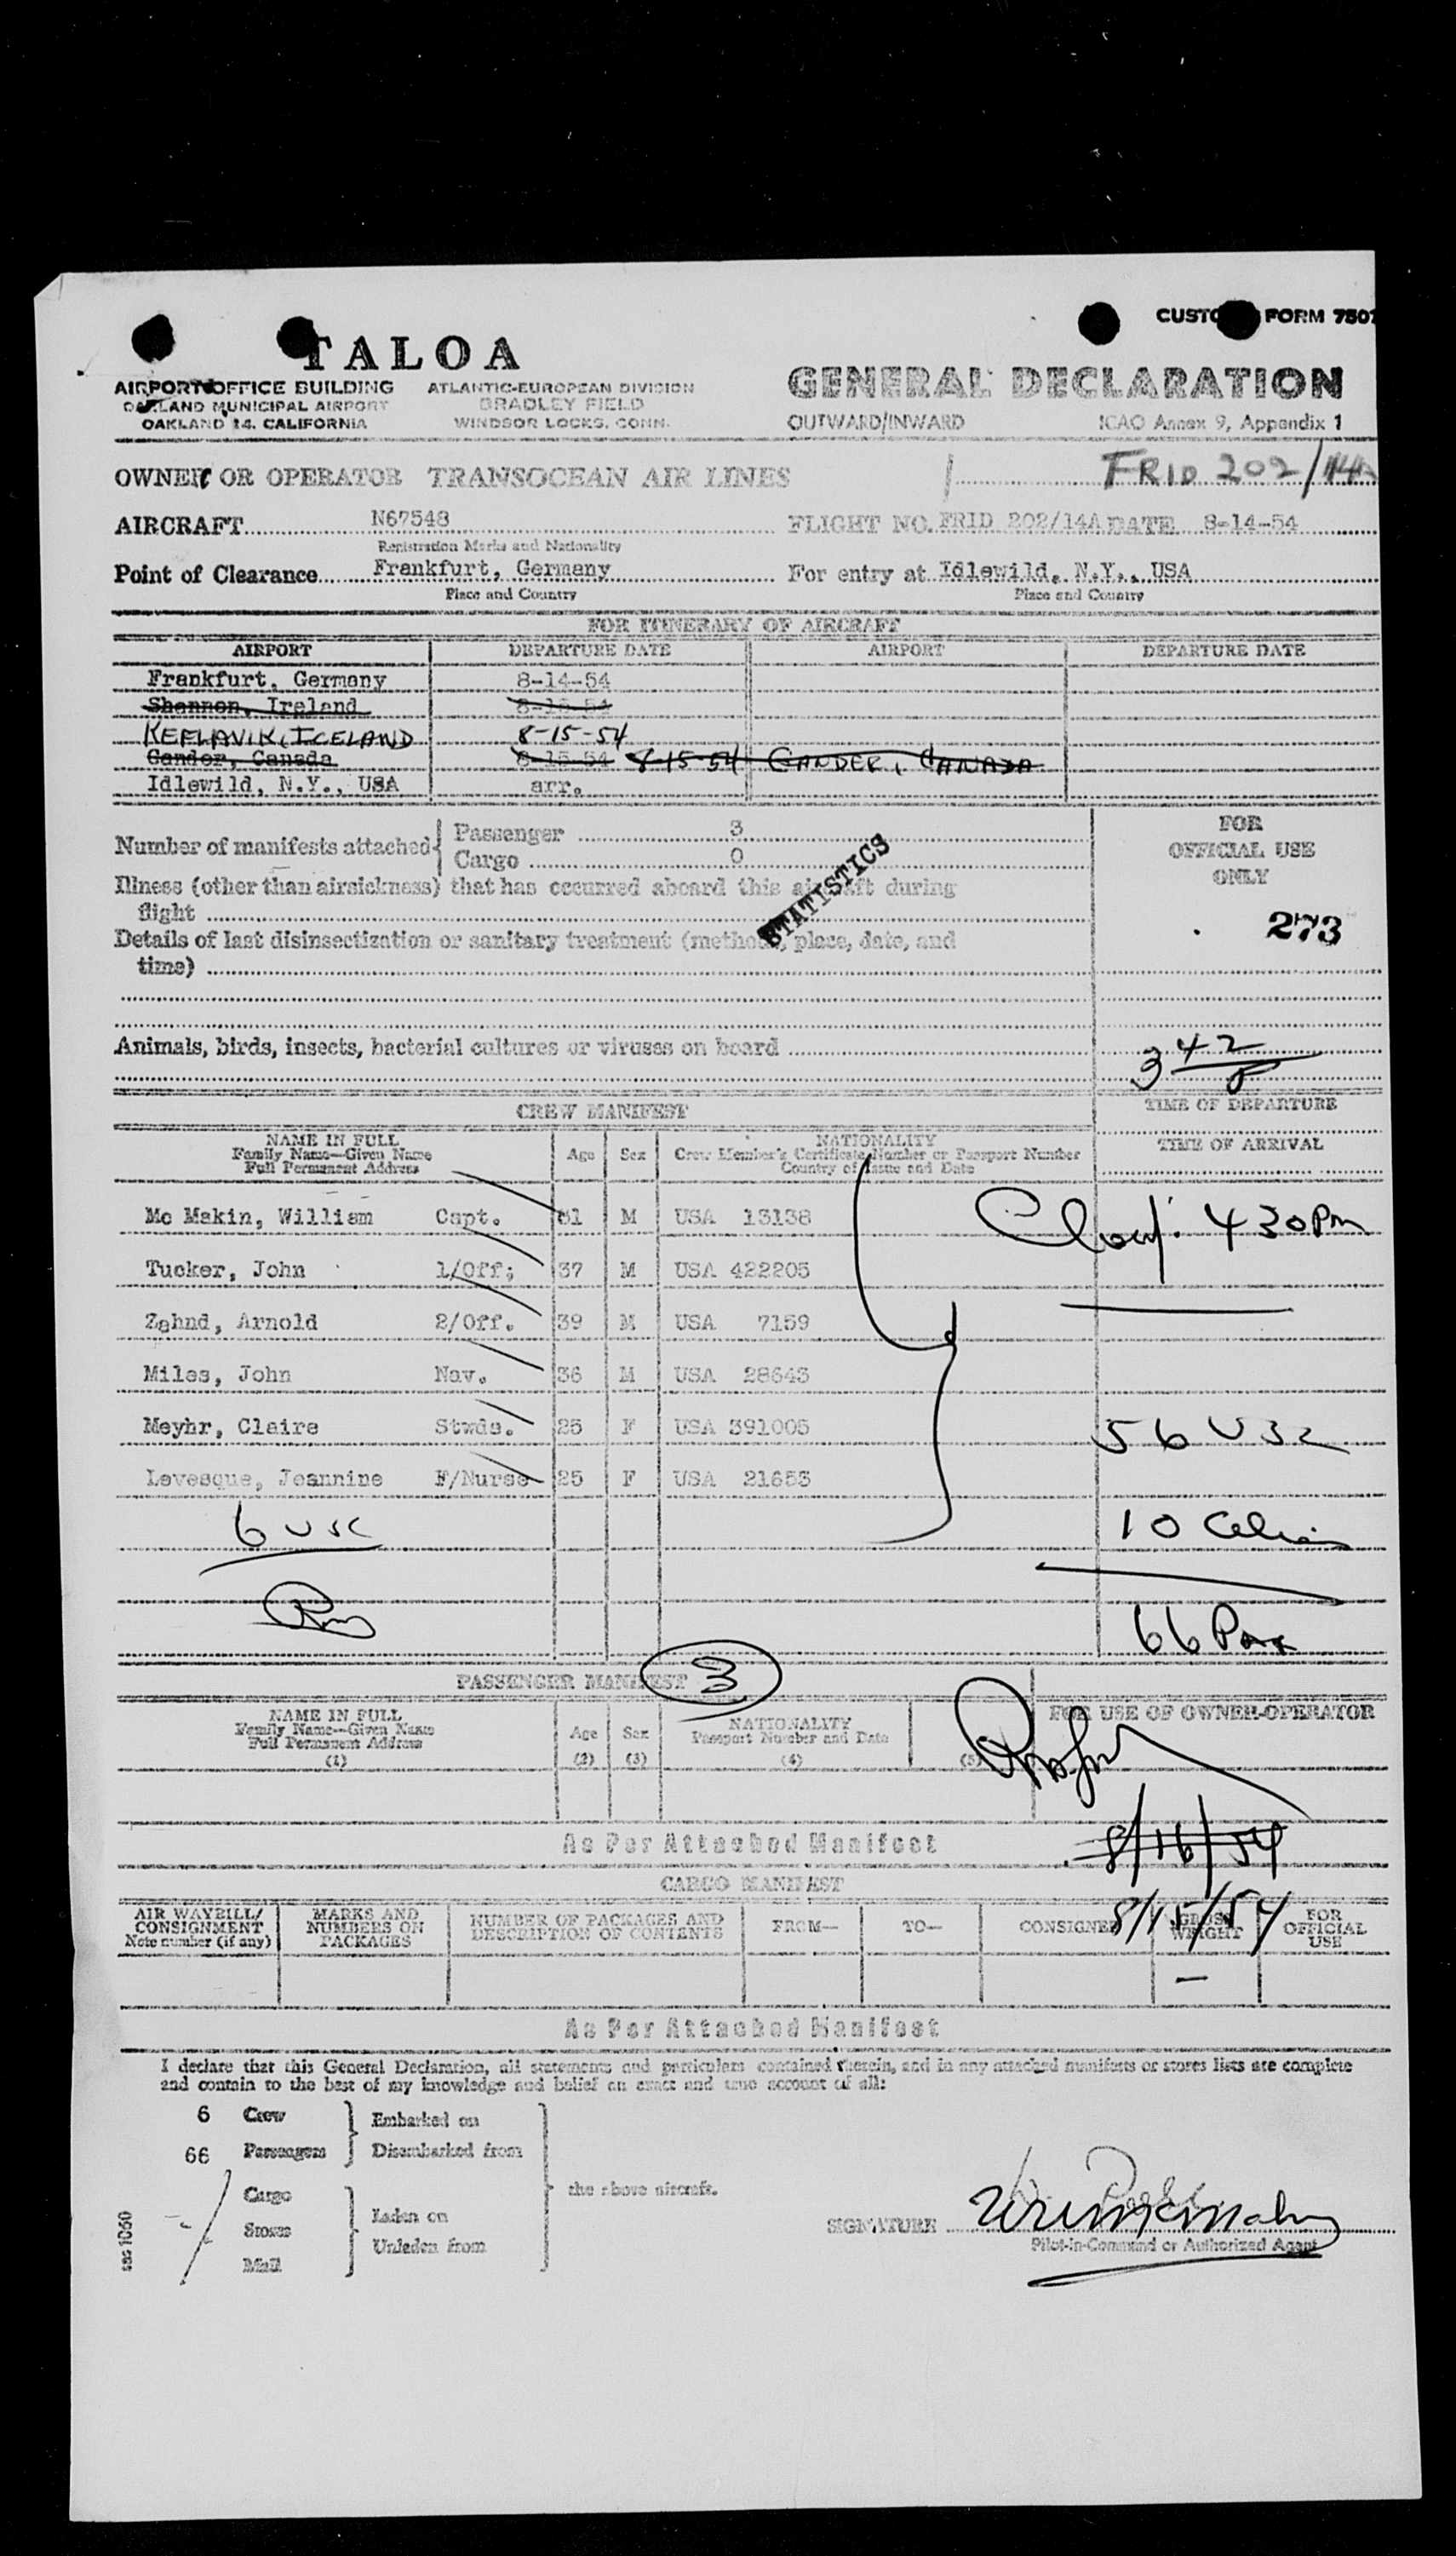 CUSTOMS FORM 7507
TALOA
AIRPORT OFFICE BUILDING
OAKLAND MUNICIPAL AIRPORT
OAKLAND 14, CALIFORNIA
ATLANTIC-EUROPEAN DIVISION
BRADLEY FIELD
WINDSOR LOCKS, CONN.
GENERAL DECLARATION
OUTWARD/INWARD ICAO Annex 9, Appendix 1
OWNER OR OPERATOR TRANSOCEAN AIR LINES FRID 202/14A
AIRCRAFT N67548 FLIGHT NO. FRID 202/14A DATE 8-14-54
Registration Marks and Nationality
Point of Clearance Frankfurt, Germany For entry at Idlewild, N.Y., USA
Place and Country Place and Country
FOR ITINERARY OF AIRCRAFT
AIRPORT DEPARTURE DATE AIRPORT DEPARTURE DATE
Frankfurt, Germany 8-14-54
Shannon, Ireland
KEFLAVIK, ICELAND 8-15-54
Gander, Canada 8-15-54 8-15-54 GANDER, CANADA
Idlewild, N.Y., USA arr.
Number of manifests attached Passenger 3
Cargo 0
FOR
OFFICIAL USE
ONLY
STATISTICS
Illness (other than airsickness) that has occurred aboard this aircraft during
flight
273
Details of last disinsectization or sanitary treatment (method, place, date, and
time)
Animals, birds, insects, bacterial cultures or viruses on board
3 42 P
CREW MANIFEST
TIME OF DEPARTURE
TIME OF ARRIVAL
NAME IN FULL
Family Name—Given Name
Full Permanent Address
Age Sex
NATIONALITY
Crew Member's Certificate Number or Passport Number
Country of Issue and Date
Mc Makin, William Capt. 31 M USA 13138
430 Pm
Tucker, John 1/Off; 37 M USA 422205
Zahnd, Arnold 2/Off. 39 M USA 7159
Miles, John Nav. 36 M USA 28643
Meyhr, Claire Stwds. 25 F USA 391005
56 USC
Levesque, Jeannine F/Nurse 25 F USA 21653
6 USC
10
66 Pax
PASSENGER MANIFEST 3
NAME IN FULL
Family Name—Given Name
Full Permanent Address
(1)
Age
(2)
Sex
(3)
NATIONALITY
Passport Number and Date
(4)
(5)
FOR USE OF OWNER-OPERATOR
As Per Attached Manifest
8/16/54
CARGO MANIFEST
8/15/54
AIR WAYBILL/
CONSIGNMENT
Note number (if any)
MARKS AND
NUMBERS ON
PACKAGES
NUMBER OF PACKAGES AND
DESCRIPTION OF CONTENTS
FROM—
TO—
CONSIGNEE
GROSS
WEIGHT
FOR
OFFICIAL
USE
—
As Per Attached Manifest
I declare that this General Declaration, all statements and particulars contained therein, and in any attached manifests or stores lists are complete
and contain to the best of my knowledge and belief an exact and true account of all:
6 Crew
66 Passengers
Embarked on
Disembarked from
Cargo
Stores
Mail
Laden on
Unladen from
the above aircraft.
SIGNATURE
Pilot-in-Command or Authorized Agent